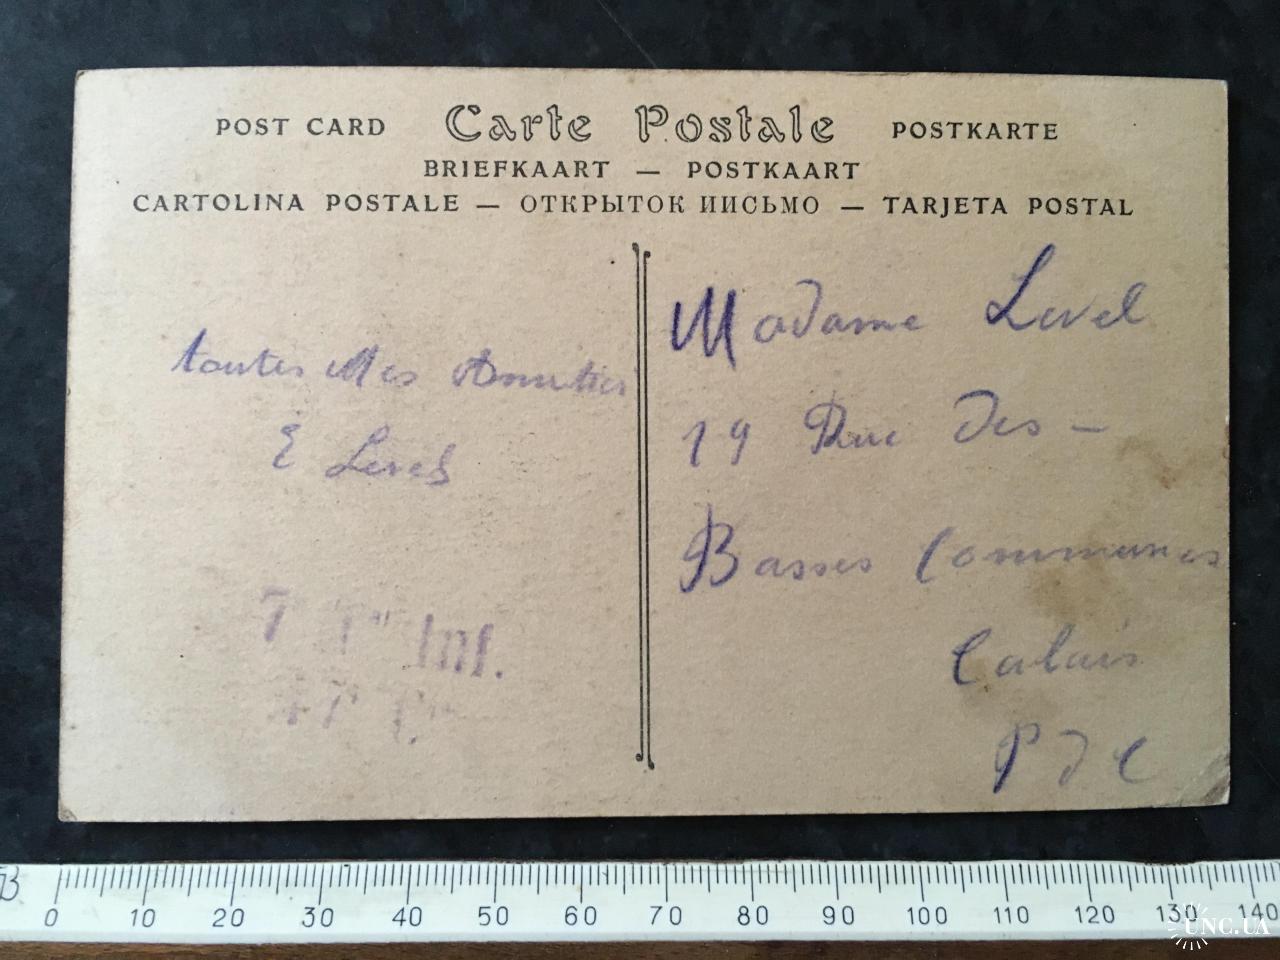 POST CARD Carte Postale POSTKARTE
BRIEFKAART — POSTKAART
CARTOLINA POSTALE — ОТКРЫТОК ИИСЬМО — TARJETA POSTAL
toutes Mes Amitiés
E Level
7 Inf.
Madame Level
19 Rue Des -
Basses Communes
Calais
P d C
0 10 20 30 40 50 60 70 80 90 100 110 120 130 140
UNC.UA